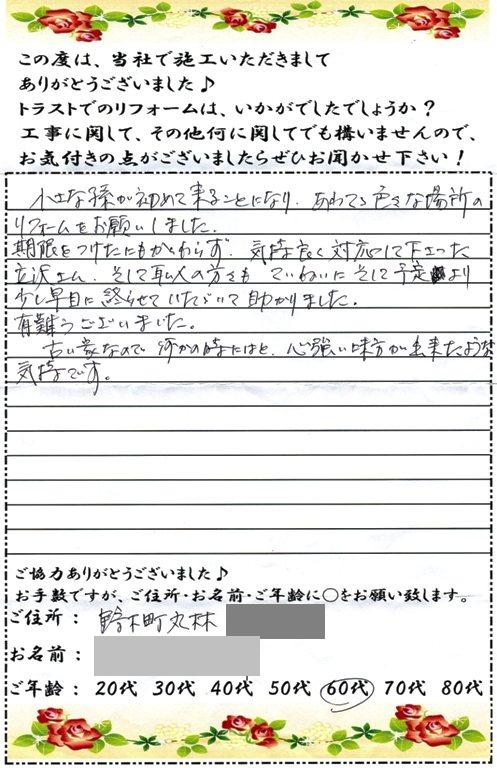 この度は、当社で施工いただきまして
ありがとうございました♪
トラストでのリフォームは、いかがでしたでしょうか?
工事に関して、その他何に関してでも構いませんので、
お気付きの点がございましたらぜひお聞かせ下さい!
小さな孫が初めて来ることになり、あわてる色々な場所の
リフォームをお願いしました。
期限をつけたにもかかわらず、気持良く対応して下さった
立沢さん、そして職人の方々も ていねいに そして予定より
少し早目に終らせていただいて助かりました。
有難うございました。
古い家なので 何かの時にはと、心強い味方が出来たような
気持です。
ご協力ありがとうございました♪
お手数ですが、ご住所・お名前・ご年齢に○をお願い致します。
ご住所: 町丸林
お名前:
ご年齢: 20代 30代 40代 50代 60代 70代 80代